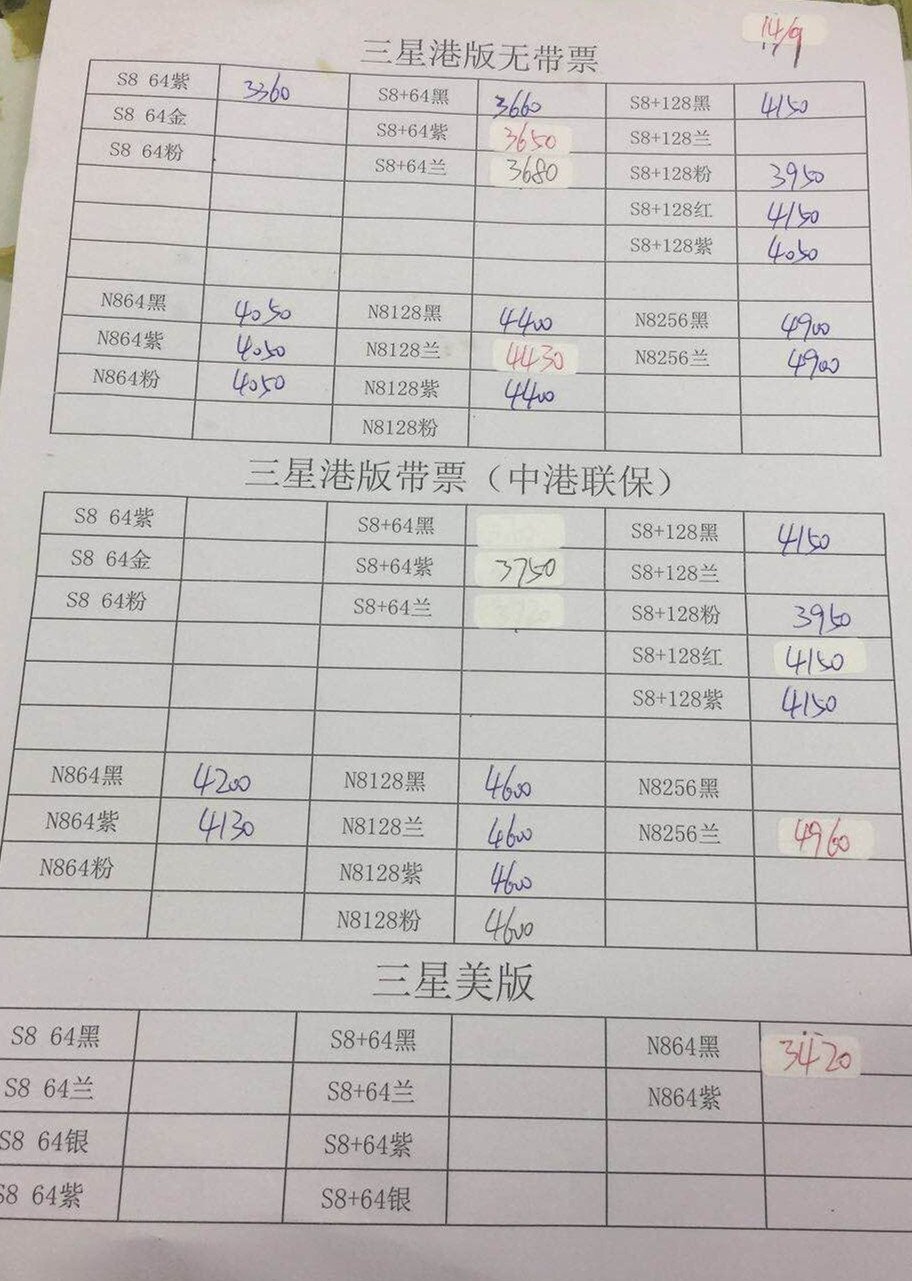 14/9
三星港版无带票
S8 64紫 3360 S8+64黑 3660 S8+128黑 4150
S8 64金 S8+64紫 3650 S8+128兰
S8 64粉 S8+64兰 3680 S8+128粉 3950
S8+128红 4150
S8+128紫 4050
N864黑 4050 N8128黑 4400 N8256黑 4900
N864紫 4050 N8128兰 4430 N8256兰 4900
N864粉 4050 N8128紫 4400
N8128粉
三星港版带票（中港联保）
S8 64紫 S8+64黑 S8+128黑 4150
S8 64金 S8+64紫 3750 S8+128兰
S8 64粉 S8+64兰 S8+128粉 3950
S8+128红 4150
S8+128紫 4150
N864黑 4200 N8128黑 4600 N8256黑
N864紫 4130 N8128兰 4600 N8256兰 4960
N864粉 N8128紫 4600
N8128粉 4600
三星美版
S8 64黑 S8+64黑 N864黑 3420
S8 64兰 S8+64兰 N864紫
S8 64银 S8+64紫
S8 64紫 S8+64银